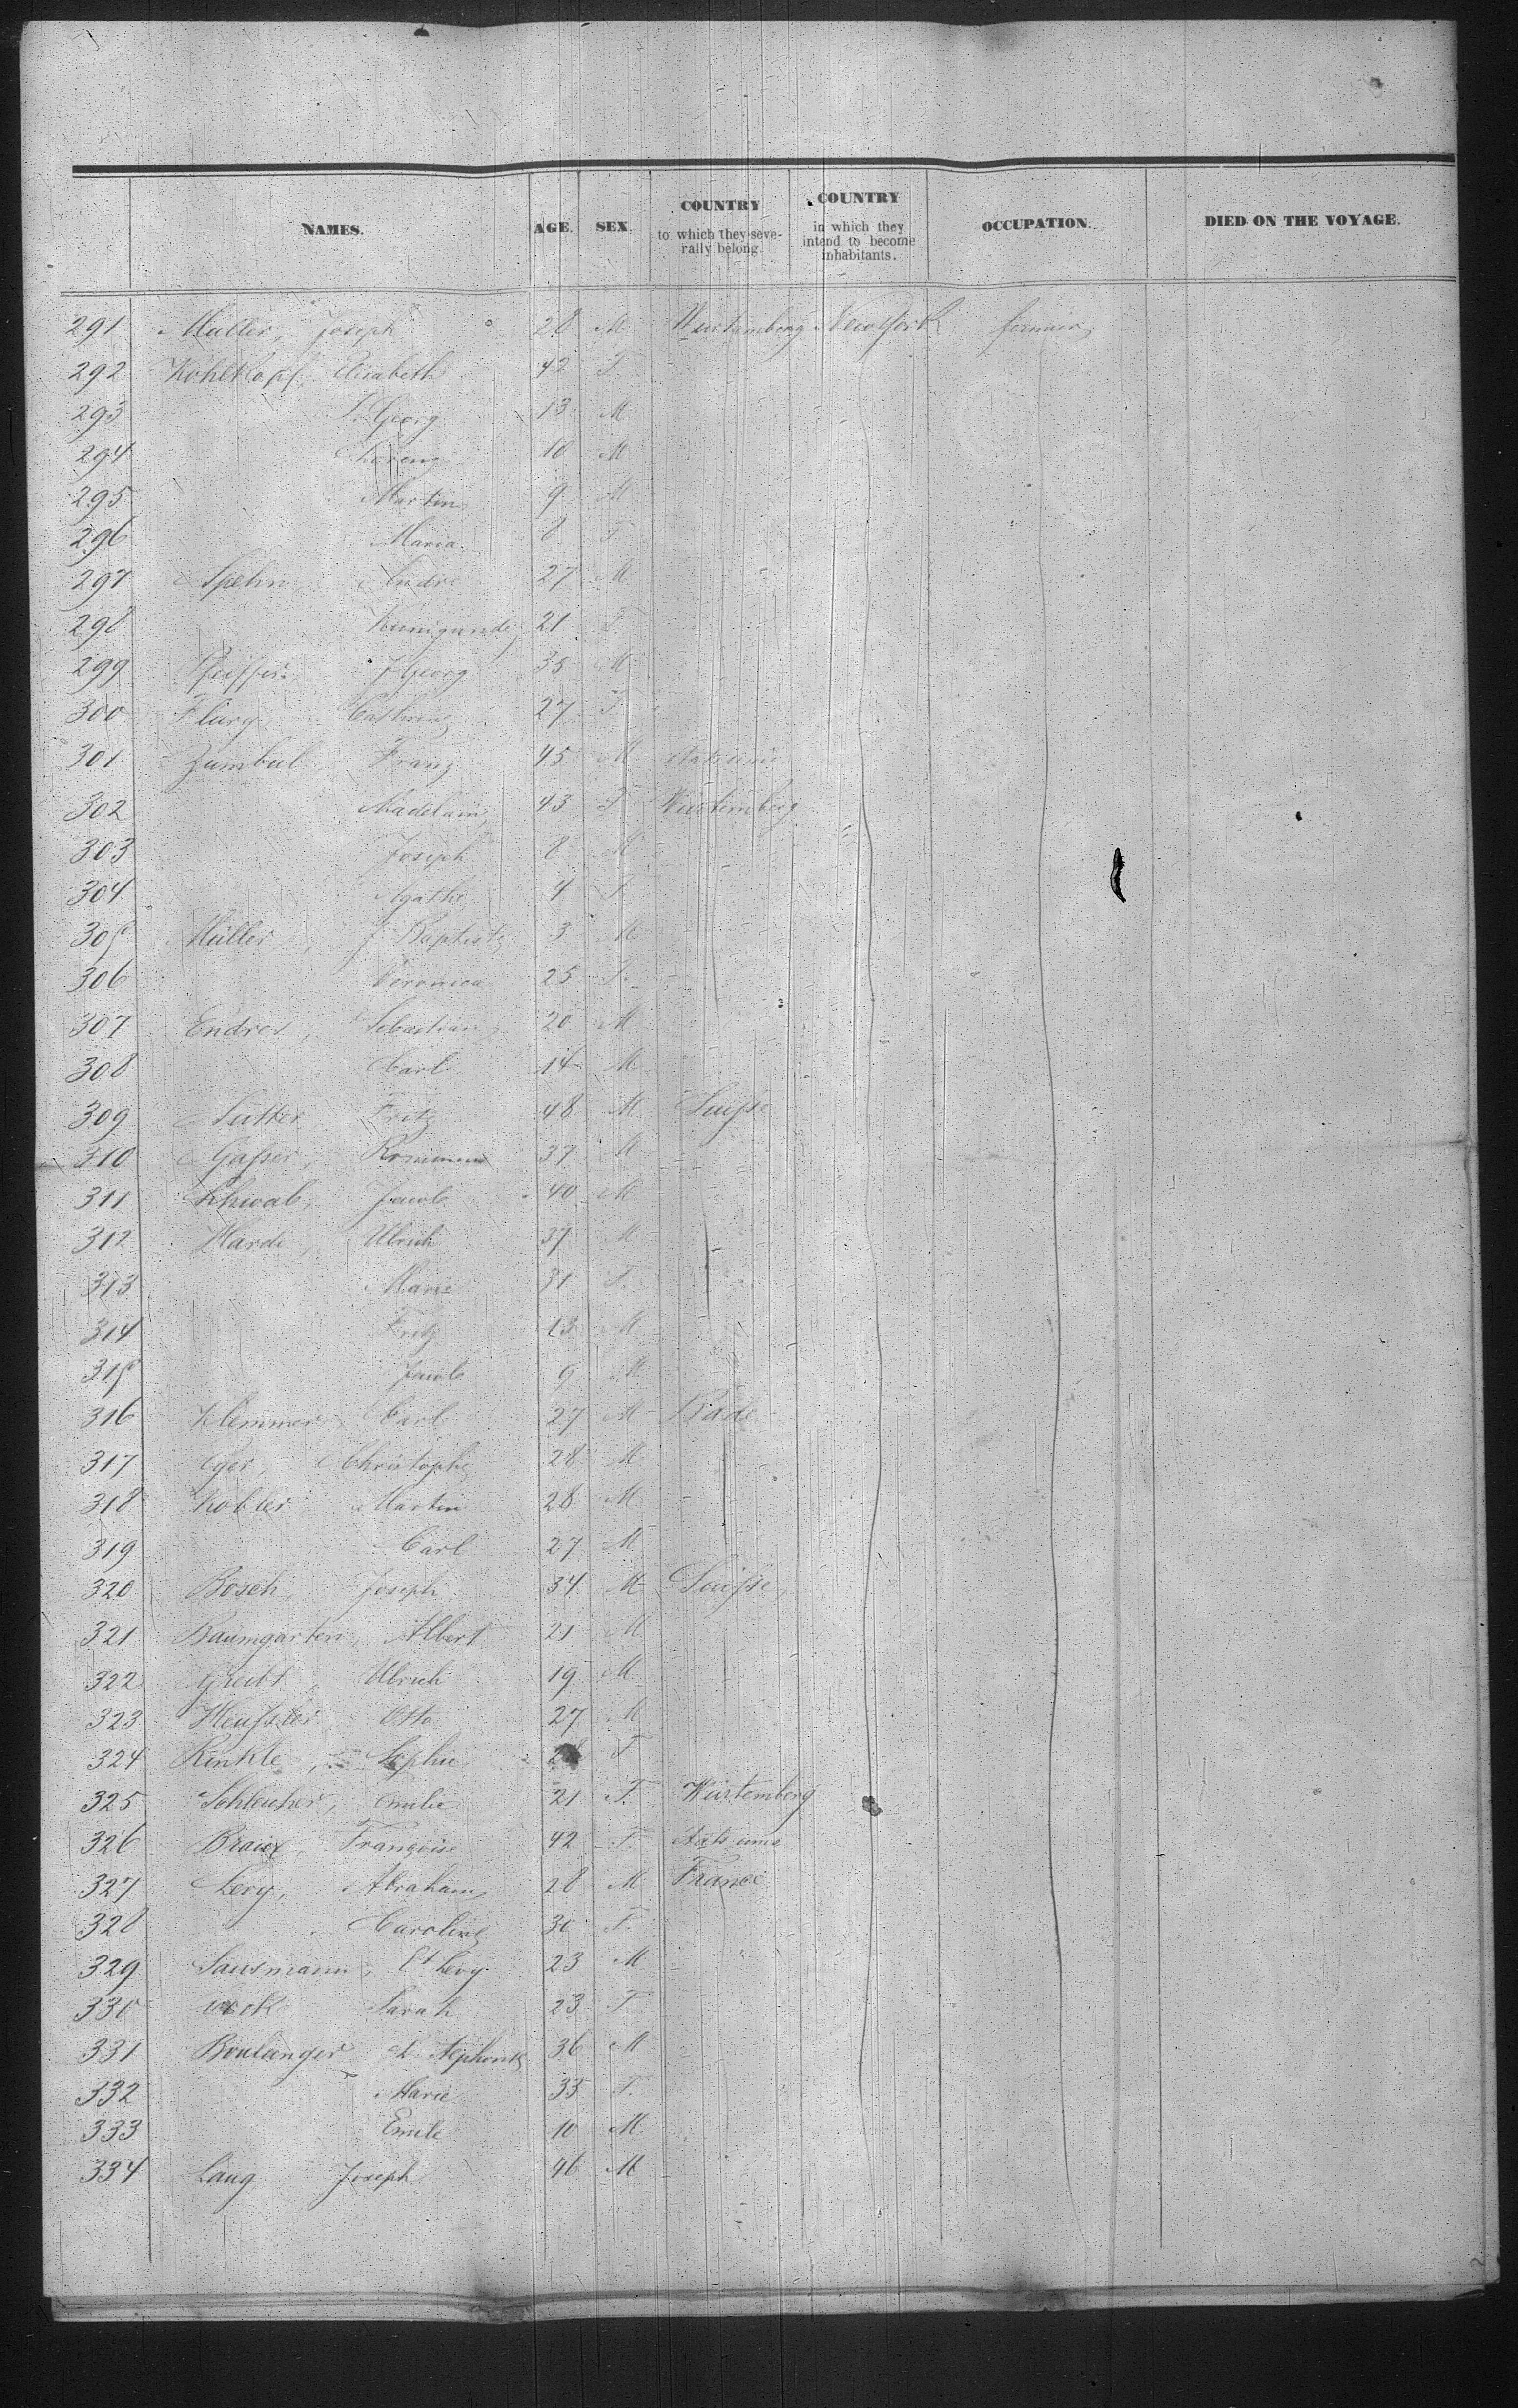 NAMES. AGE. SEX. COUNTRY to which they severally belong. COUNTRY in which they intend to become inhabitants. OCCUPATION. DIED ON THE VOYAGE.
291 Müller, Joseph 28 M Wurtemberg New York fermier
292 Kohlkopf, Elisabeth 42 F
293 Georg 13 M
294 Lorenz 10 M
295 Martin 9 M
296 Maria 8 F
297 Spehn, Andre 27 M
298 Kunigunde 21 F
299 Pfeiffer J Georg 35 M
300 Flury, Cathrine 27 F
301 Zumbul Franz 45 M etats unis
302 Madelaine 43 F Wurtemberg
303 Joseph 8 M
304 Agathe 4 F
305 Müller, J Baptiste 3 M
306 Veronica 25 F
307 Endres, Sebastian 20 M
308 Carl 14 M
309 Sutter Fritz 48 M Suisse
310 Gasser, 37 M
311 Schwab, Jacob 40 M
312 Ulrich 37 M
313 Marie 31 F
314 Fritz 13 M
315 Jacob 9 M
316 Klemmer Carl 27 M Bade
317 Eger, Christophe 28 M
318 Kobler Martin 28 M
319 Carl 27 M
320 Bosch, Joseph 34 M Suisse
321 Baumgarten, Albert 21 M
322 Ulrich 19 M
323 Heussler Otto 27 M
324 Rinkle, Sophie F
325 Schleicher, Emilie 21 F Würtemberg
326 Braux, Françoise 42 F etats unis
327 Levy, Abraham 28 M France
328 Caroline 30 F
329 Sausmann, Levy 23 M
330 Sarah 23 F
331 Boulanger Alphonse 36 M
332 Marie 33 F
333 Emile 10 M
334 Lang Joseph 46 M